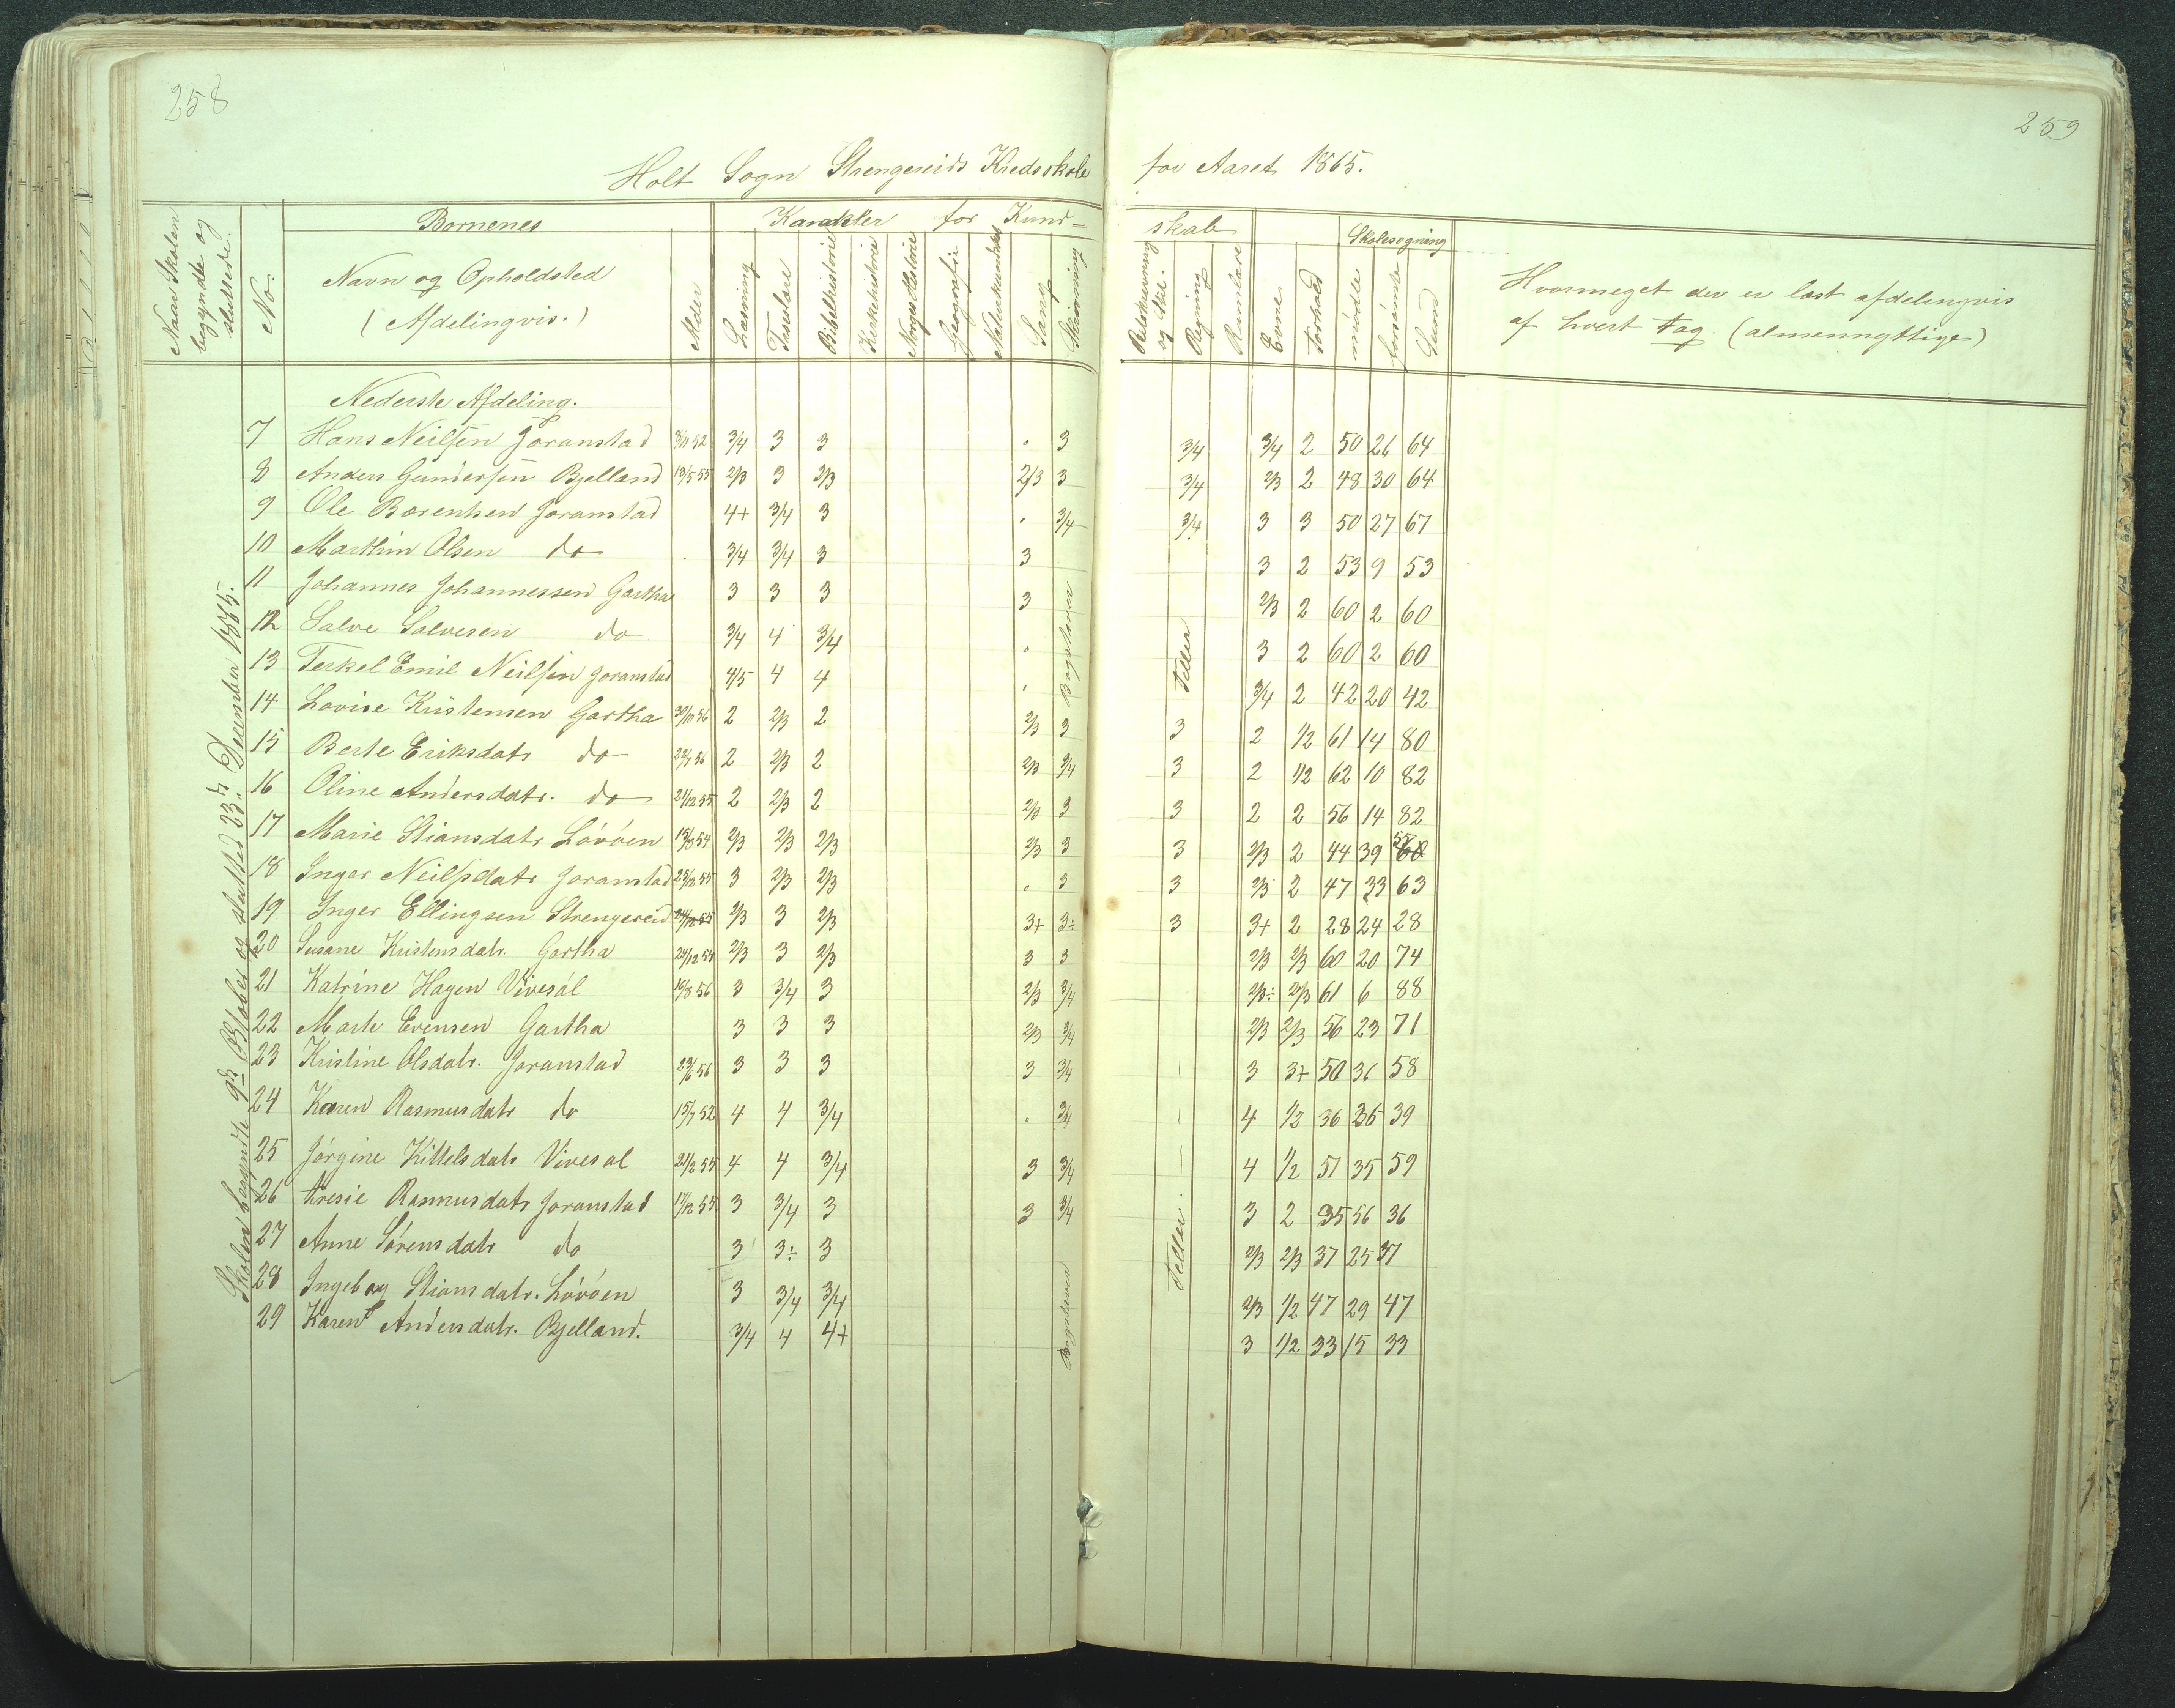 258
259
Holt Sogn Strengereids Kredsskole for Aaret 1865.
Naar Skolen begyndte og sluttede.
No.
Børnenes
Navn og Opholdsted
(Afdelingvis.)
Alder
Karakter for Kundskab
Læsning
Troeslære
Bibelhistorie
Kirkehistorie
Norges Historie
Geografie
Naturkundskab
Sang
Skrivning
Retskrivning og Stil.
Regning
Rumlære
Evne
Forhold
Skolesøgning
mødte
forsømte
Sum
Hvormeget der er læst afdelingvis
af hvert Fag. (almennyttige)
Skolen begyndte 9de Oktober og sluttet 23de December 1865.
Nederste Afdeling.
7 Hans Neilsen Goranstad 8/11 52 3/4 3 3 . 3 3/4 3/4 2 50 26 64
8 Anders Gundersen Bjelland 19/5 55 2/3 3 2/3 2/3 3 3/4 2/3 2 48 30 64
9 Ole Bærentsen Joranstad 4+ 3/4 3 . 3/4 3/4 3 3 50 27 67
10 Marthin Olsen do 3/4 3/4 3 3 3 2 53 9 53
11 Johannes Johannessen Gartha 3 3 3 3 2/3 2 60 2 60
12 Salve Salvesen do 3/4 4 3/4 . Bogstaver Teller 3 2 60 2 60
13 Terkel Emil Neilsen Joranstad 4/5 4 4 . 3/4 2 42 20 42
14 Lovise Kristensen Gartha 30/10 56 2 2/3 2 2/3 3 3 2 1/2 61 14 80
15 Berte Eriksdatr do 22/7 56 2 2/3 2 2/3 3/4 3 2 1/2 62 10 82
16 Oline Andersdatr. do 21/12 55 2 2/3 2 2/3 3 3 2 2 56 14 82
17 Marie Stiansdatr Lövöen 15/8 54 2/3 2/3 2/3 2/3 3 3 2/3 2 44 39
18 Inger Neilsdatr Joranstad 25/12 55 3 2/3 2/3 . 3 3 2/3 2 47 33 63
19 Inger Ellingsen Strengereid 2/3 3 2/3 3+ 3÷ 3 3+ 2 28 24 28
20 Susane Kristensdatr. Gartha 24/12 54 2/3 3 2/3 3 3 2/3 2/3 60 20 74
21 Katrine Hagen Vivesöl 19/8 56 3 3/4 3 2/3 3/4 2/3÷ 2/3 61 6 88
22 Marte Evensen Gartha 3 3 3 2/3 3/4 2/3 2/3 56 23 71
23 Kristine Olsdatr. Joranstad 23/6 56 3 3 3 3 3/4 3 3+ 50 31 58
24 Karen Rasmusdatr do 15/7 52 4 4 3/4 . 3/4 4 1/2 36 36 39
25 Jörgine Kittelsdatr Vivesöl 21/2 55 4 4 3/4 3 3/4 4 1/2 51 35 59
26 Gresie Rasmusdatr Joranstad 17/12 55 3 3/4 3 3 3/4 3 2 35 56 36
27 Anne Sörensdatr do 3 3÷ 3 2/3 2/3 37 25 37
28 Ingeborg Stiansdatr. Lövöen 3 3/4 3/4 Bogstaver Teller 2/3 1/2 47 29 47
29 Karen Andersdatr. Bjelland. 3/4 4 4+ 3 1/2 33 15 33